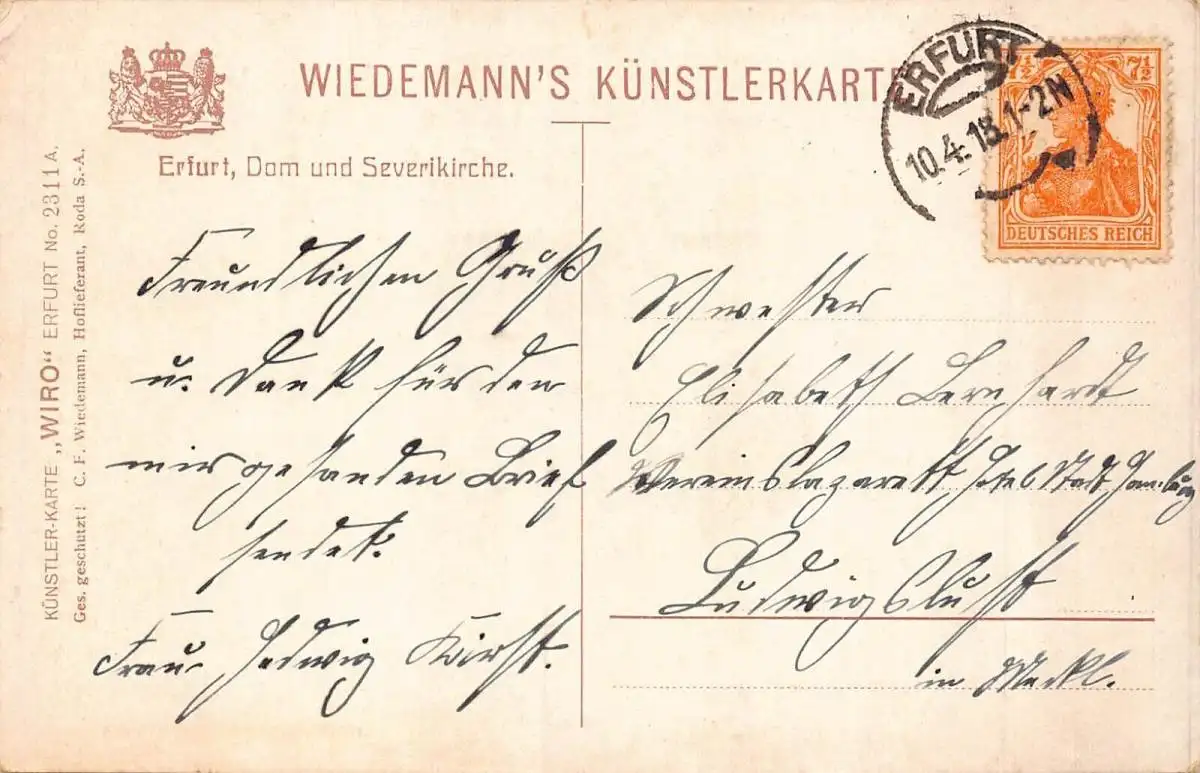 WIEDEMANN'S KÜNSTLERKARTE
Erfurt, Dom und Severikirche.
KÜNSTLER-KARTE „WIRO“ ERFURT No. 2311 A.
Ges. geschützt! C. F. Wiedemann, Hoflieferant, Roda S.-A.
ERFURT
10.4.18.1-2N
7½ 7½
DEUTSCHES REICH
Freundlichen Gruß
u. Dank für den
mir gesanden Brief
sendet.
Frau Hedwig Kirst.
Schwester
Elisabeth Bernhardt
Vereinslazarett Hotel Stadt Hamburg
Ludwigslust
in Meckl.